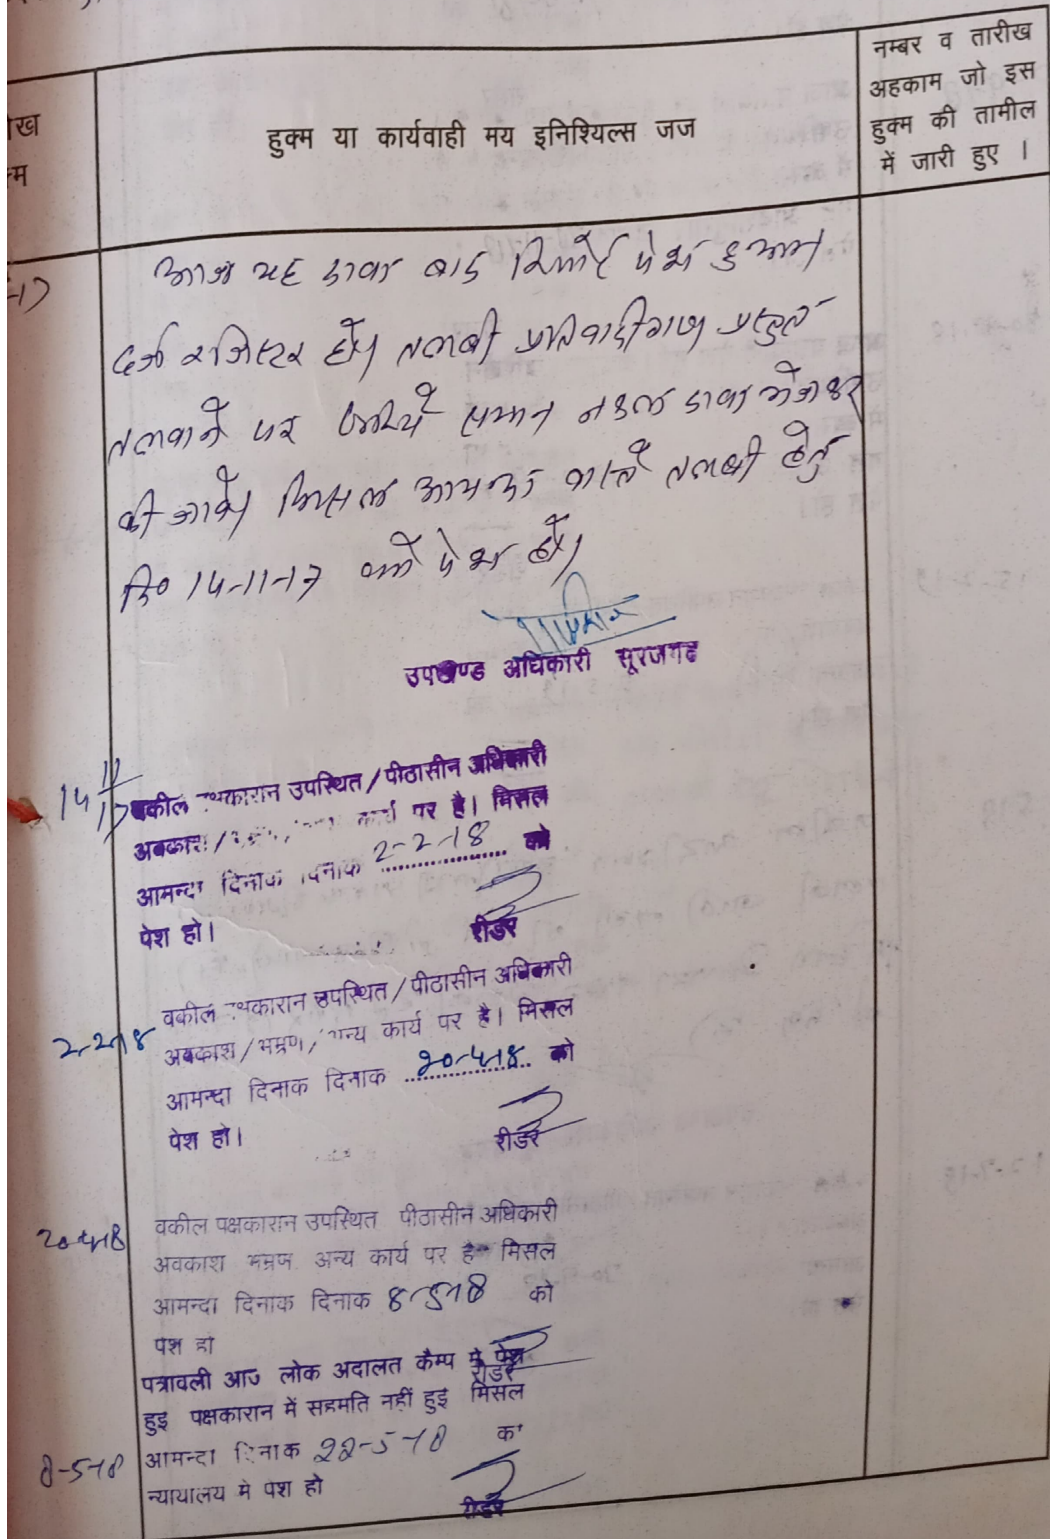 नम्बर व तारीख
अहकाम जो इस
हुक्म की तामील
में जारी हुए ।
हुक्म या कार्यवाही मय इनिश्यिल्स जज
आज यह दावा बाद रिपोर्ट पेश हुआ।
दर्ज रजिस्टर हो। तलबी प्रतिवादीगण प्रस्तुत
तलवाने पर जरिये समन नकल दावा
की जावे। मिसल आमन्दा वास्ते तलबी हेतु
दि० 14-11-17 को पेश हो।
उपखण्ड अधिकारी सूरजगढ
14/11/17
वकील पक्षकारान उपस्थित/पीठासीन अधिकारी
अवकाश/ कार्य पर है। मिसल
आमन्दा दिनाक दिनाक 2-2-18 को
पेश हो।
रीडर
2-2-18
वकील पक्षकारान उपस्थित/पीठासीन अधिकारी
अवकाश/भम्रण/अन्य कार्य पर है। मिसल
आमन्दा दिनाक दिनाक 20-4-18 को
पेश हो।
रीडर
20-4-18
वकील पक्षकारान उपस्थित पीठासीन अधिकारी
अवकाश भम्रण अन्य कार्य पर है मिसल
आमन्दा दिनाक दिनाक 8-5-18 को
पेश हो
रीडर
पत्रावली आज लोक अदालत कैम्प मे पेश
हुइ पक्षकारान में सहमति नहीं हुइ मिसल
8-5-18
आमन्दा दिनाक 22-5-18 को
न्यायालय मे पेश हो
रीडर